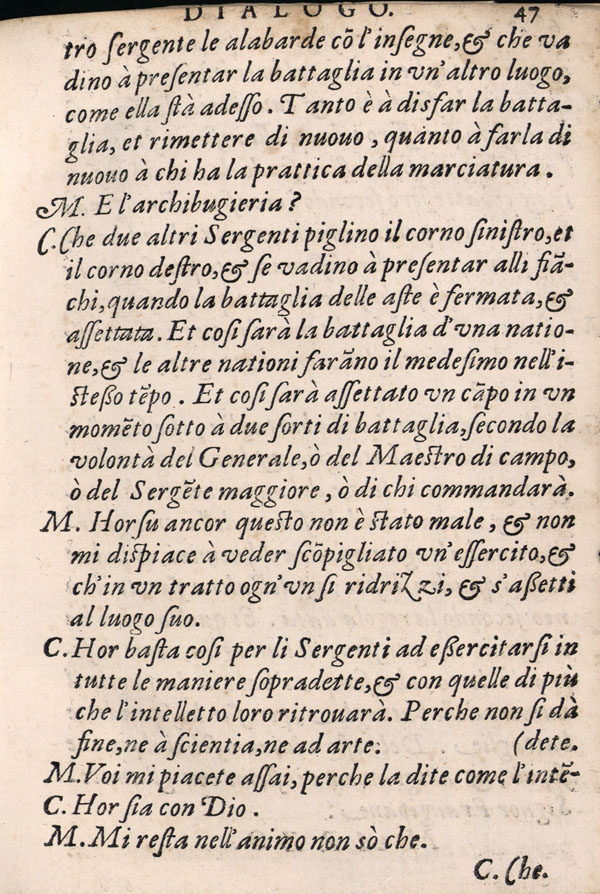 DIALOGO. 47
tro sergente le alabarde cõ l'insegne, & che va
dino à presentar la battaglia in vn'altro luogo,
come ella stà adesso. Tanto è à disfar la batta-
glia, et rimettere di nuouo, quanto à farla di
nuouo à chi ha la prattica della marciatura.
M. E l'archibugieria?
C. Che due altri Sergenti piglino il corno sinistro, et
il corno destro, & se vadino à presentar alli fiã-
chi, quando la battaglia delle aste è fermata, &
assettata. Et cosi sarà la battaglia d'vna natio-
ne, & le altre nationi farãno il medesimo nell'i-
steßo tẽpo. Et cosi sarà assettato vn cãpo in vn
momẽto sotto à due sorti di battaglia, secondo la
volontà del Generale, ò del Maestro di campo,
ò del Sergẽte maggiore, ò di chi commandarà.
M. Horsu ancor questo non è stato male, & non
mi dispiace à veder scõpigliato vn'essercito, &
ch'in vn tratto ogn'vn si ridrizzi, & s'aßetti
al luogo suo.
C. Hor basta cosi per li Sergenti ad eßercitarsi in
tutte le maniere sopradette, & con quelle di più
che l'intelletto loro ritrouarà. Perche non si dà
fine, ne à scientia, ne ad arte. (dete.
M. Voi mi piacete assai, perche la dite come l'intẽ-
C. Hor sia con Dio.
M. Mi resta nell'animo non sò che.
C. Che.